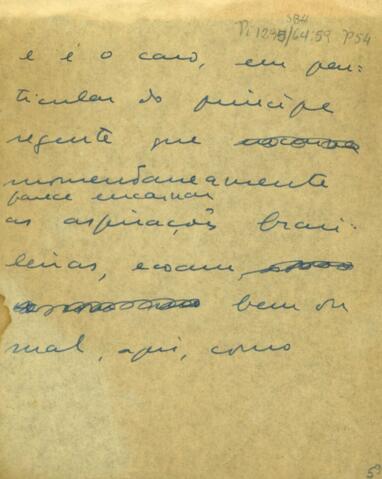 SB4
Pi 129/64:59 P54
e é o caso, em par-
ticular do principe
regente que
momendaneamente
parece encarnar
as aspirações brasi-
leiras, ecoam,
bem ou
mal, aqui, como
59